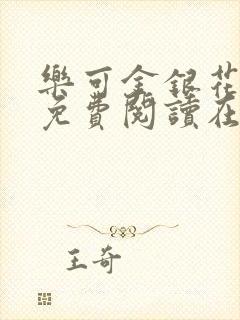 樂可金銀花
免費閱讀在
王奇